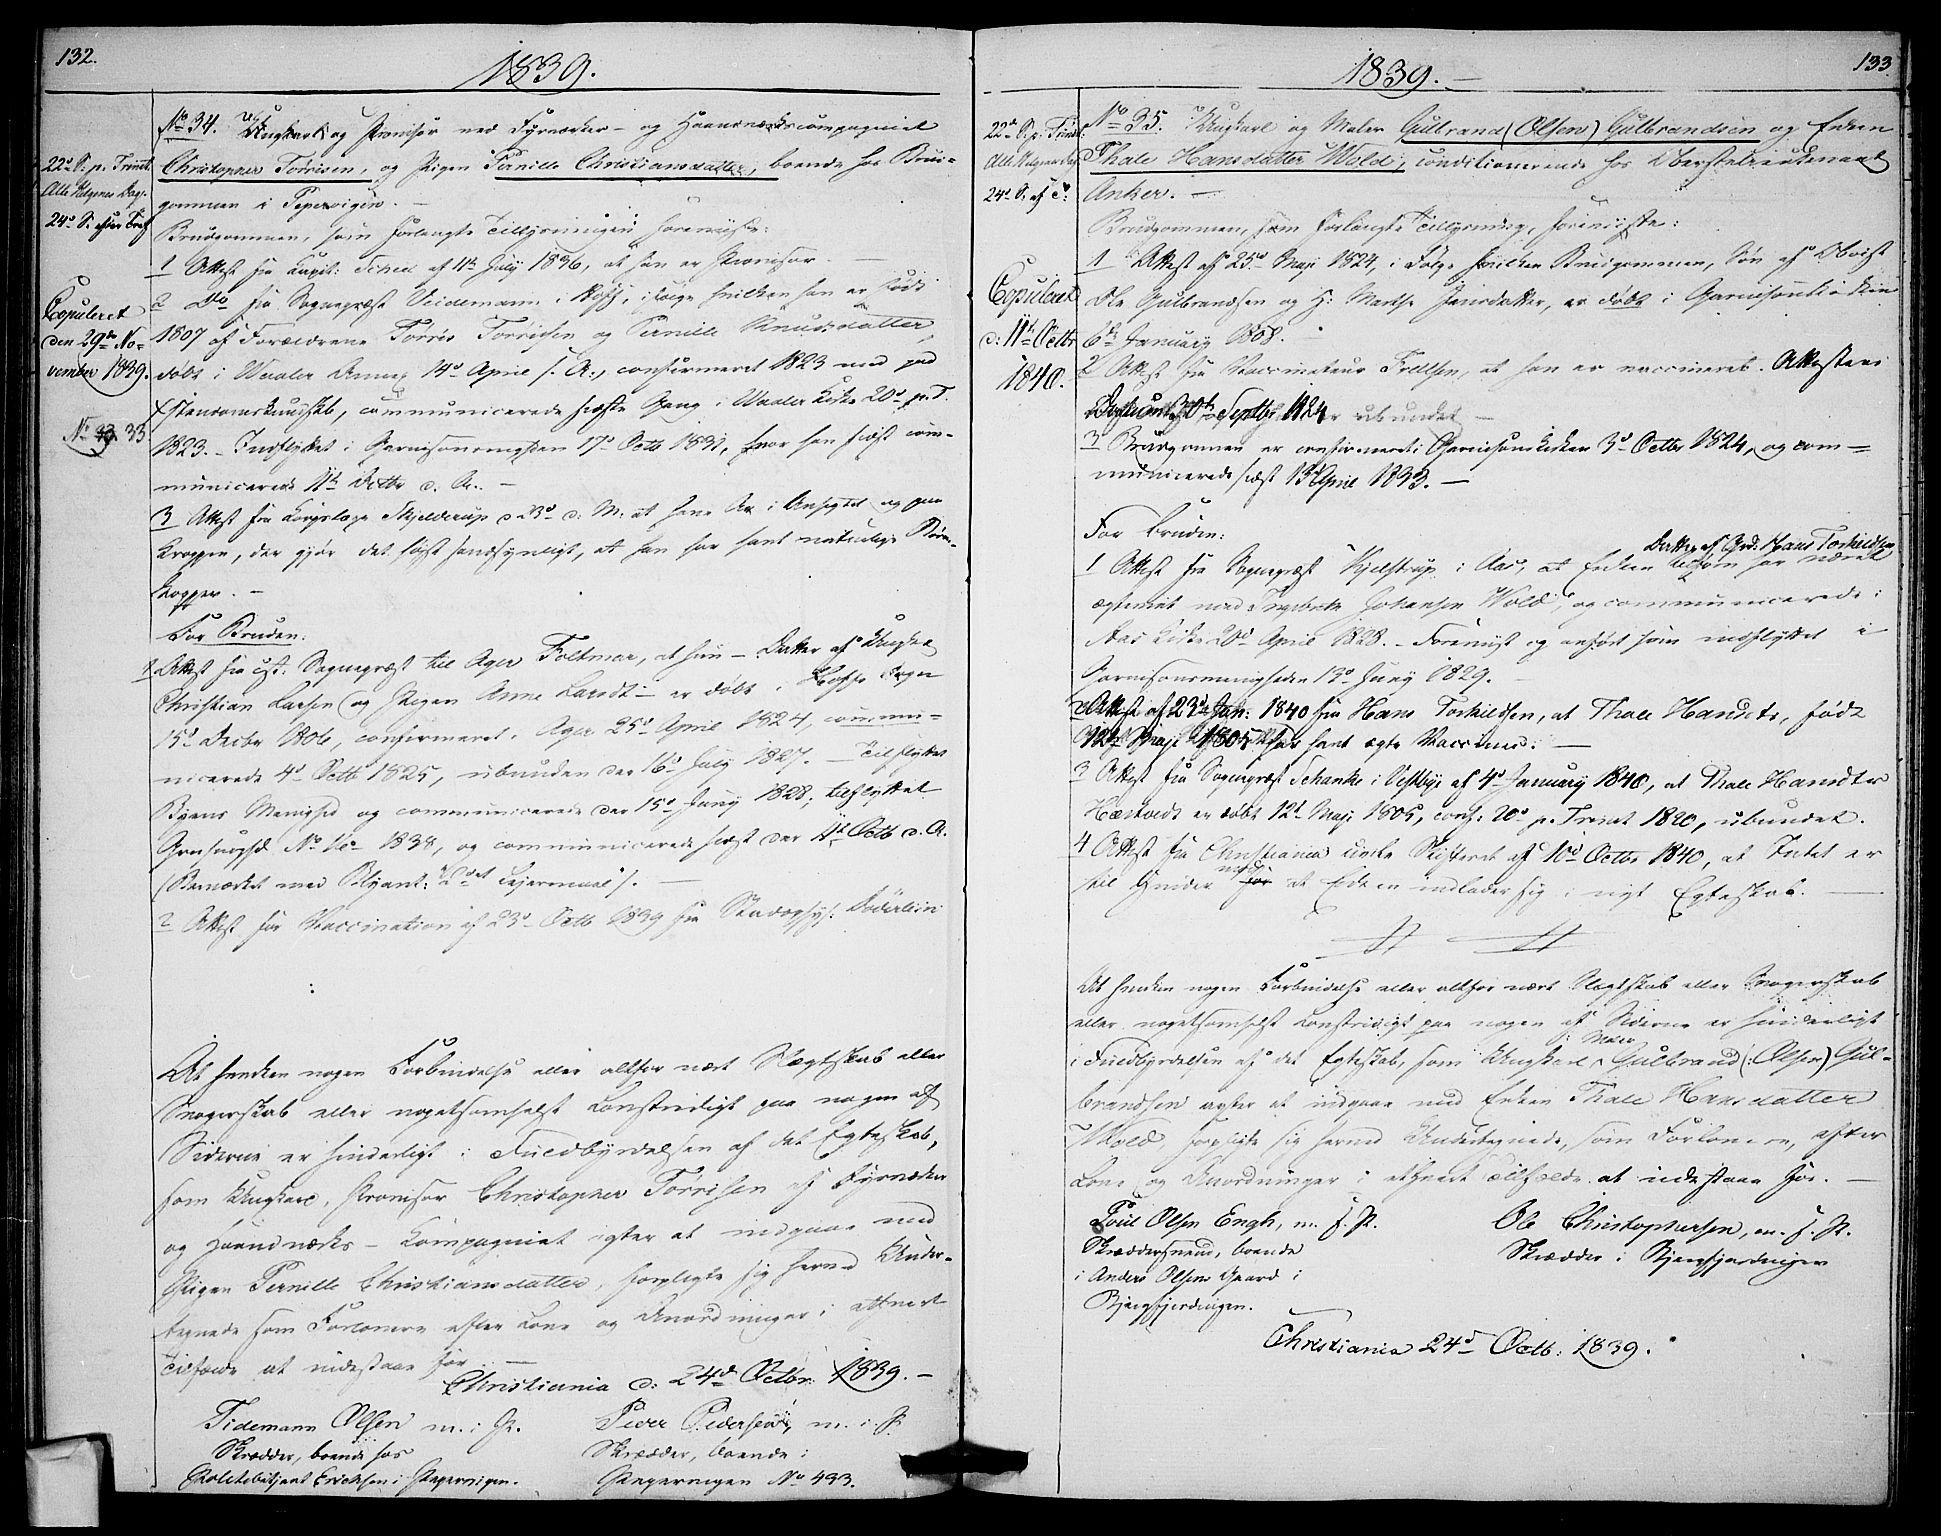 132.
1839.
22d S. p. Trinit.
Alle Helgens Dag.
24d S. efter Tref
Copuleret
den 29de No-
vember 1839.
No 33.
No 34. Ungkarl og Provisor ved Fyrværker- og Haandværkscompagniet
Christopher Torrisen, og Pigen Pernille Christiansdatter, boende hos Brud-
gommen i Pipervigen. —
Brudgommen, som forlangte Tillysningen foreviiste:
1 Attest fra Capit: af 11te July 1836, at han er Provisor. —
2 Do fra Sognepræst Veidemann i Hoff, ifølge hvilken han er født
1807 af Forældrene Torris Torrisen og Pernille Knudsdatter,
døbt i Waaler Annex 14d April s. A., confirmeret 1823 med god
Christendomskundskab, communicerede første Gang i Waaler Kirke 20d p. T.
1823. – Indflyttet i Garnisonsmgheden 17d Octb 1831, hvor han sidst com-
municerede 11te Octbr d. A. —
3 Attest fra Corpslæge Skjelderup d 23d d. M. at hans Ar i Ansigtet og paa
Kroppen, der gjør det høist sandsynligt, at han har havt naturlige Børne-
kopper. —
For Bruden:
1 Attest fra cst. Sognepræst til Ager Foltmar, at hun – Datter af Ungkarl
Christian Larsen og Pigen Anne Landt – er døbt i Hoffs Sogn
15d Decbr 1806, confirmeret i Ager 25d April 1824, commu-
nicerede 4d Octb 1825, ubunden der 16d July 1827. – Tilflyttet
Byens Menighd og communicerede der 15d Juny 1828; tilflyttet
Grnsmghd No 16 1834, og communicerede sidst der 11te Octb d. A.
(Bemærket med Polyant: 2det Leiermaal). —
2 Attest for Vaccination af 23d Octb 1839 fra Stadsphys: Döderlein
At hverken nogen Forbindelse eller altfor nært Slægtskab eller
Svogerskab eller nogetsomhelst Lovstridigt paa nogen af
Siderne er hinderligt i Fuldbyrdelsen af det Egteskab,
som Ungkarl, Provisor Christopher Torrisen af Fyrværker
og Haandværks-Compagniet agter at indgaae med
Pigen Pernille Christiansdatter, forpligte sig herved Under-
tegnede som Forlovere efter Love og Anordninger i ethvert
Tilfælde at indestaae for. —
Christiania d: 24de Octbr 1839. —
Tidemann Olsen m. i. P.
Skrædder, boende hos
Politibetjent Erichsen i Pipervigen.
Peder Pedersen, m. i. P.
Skrædder, boende i
Pipervigen No 493.
133
1839. —
22d S. p. Trinit.
Alle Helgens Dag
24d S. af d:
Copuleret
d: 11te Octbr
1840.
No 35. Ungkarl og Maler Gulbrand (Olsen) Gulbrandsen og Enken
Thale Hansdatter Wold, conditionerende hos Oberstelieutenant
Anker. —
Brudgommen, som forlangte Tillysning, foreviiste:
1 Attest af 25d Maj 1824, i Følge hvilken Brudgommen, Søn af
Ole Gulbrandsen og H: Marthe Jensdatter, er døbt i Garnisonskirken
6te January 1808. —
2 Attest fra Vaccinateur Frellsen, at han er vaccineret. Attesten
30te Septbr 1824
3 Brudgommen er confirmeret i Garnisonskirken 3d Octbr 1824, og com-
municerede sidst 13d April 1833. —
For Bruden:
Datter af Grd: Hans Torkildsen
1 Attest fra Sognepræst Kjelstrup i Aas, at Enken som har været
ægteviet med Ingebreth Johansen Wold, og communicerede i
Aas Kirke 20d April 1828. – Foreviist og anført som indflyttet i
Garnisonsmenigheden 13d Juny 1829. —
2 Attest af 23d Jan: 1840 fra Hans Torkildsen, at Thale Hansdtr, født
12d Maj 1805 har havt ægte Vacciner. —
3 Attest fra Sognepræst Schanke i Vestbye af 4d January 1840, at Thale Hansdtr
Hærstvedt er døbt 12d Maj 1805, conf: 20d p. Trinit 1820, ubundet.
4 Attest fra Christiania Skifteret af 10d Octbr 1840, at Intet er
til Hinder mod at Enken indlader sig i nyt Egteskab. —
At hverken nogen Forbindelse eller altfor nært Slægtskab eller Svogerskab
eller nogetsomhelst Lovstridigt paa nogen af Siderne er hinderligt
Maler
i Fuldbyrdelsen af det Egteskab, som Ungkarl Gulbrand (: Olsen) Gul-
brandsen agter at indgaae med Enken Thale Hansdatter
Wold, forpligte sig herved Undertegnede, som Forlovere, efter
Love og Anordninger i ethvert Tilfælde at indestaae for. —
Poul Olsen Engh, m. f. P.
Skræddersvend, boende
i Anders Olsens Gaard i
Bjergfjerdingen.
Ole Christophersen, m. f. P.
Skrædder i Bjergfjerdingen
Christiania 24d Octb: 1839.